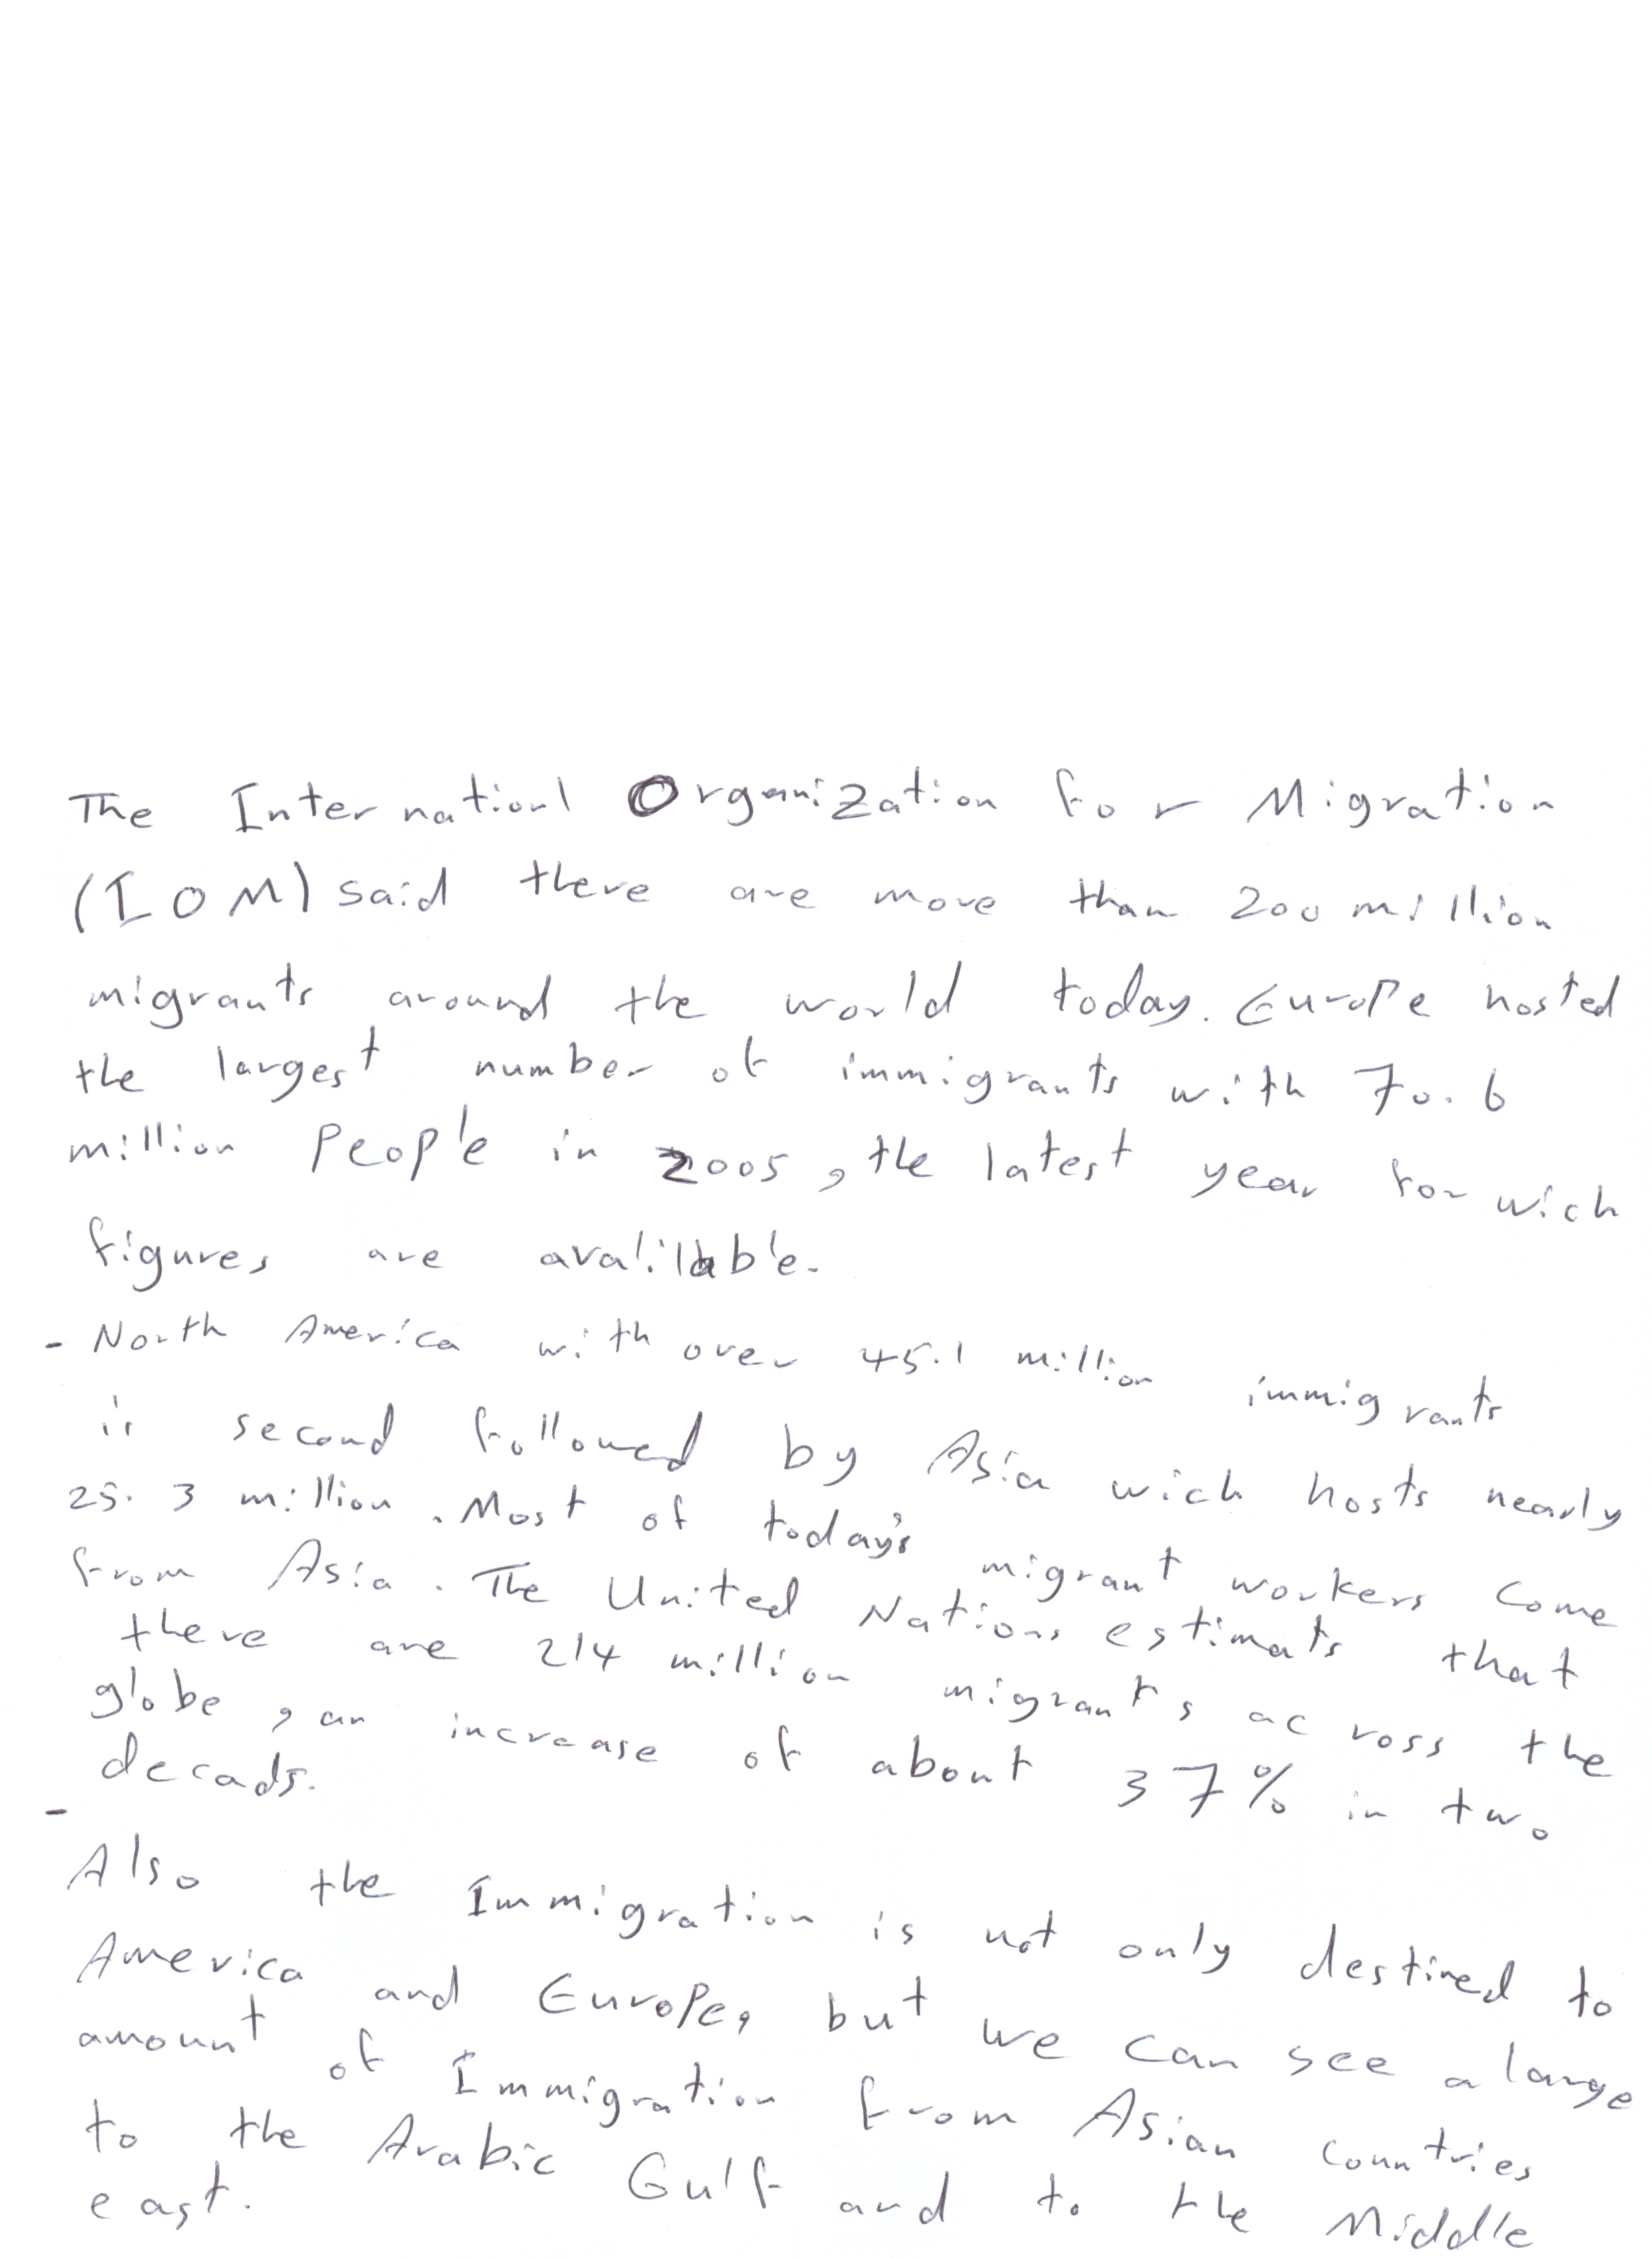 The Internationl Organization for Migration
(IOM) said there are more than 200 million
migrants around the world today. Europe hosted
the largest number of immigrants with 70.6
million People in 2005, the latest year for wich
figures are avalilable.
- North America with over 45.1 million immigrants
is second followed by Asia wich hosts nearly
25.3 million. Most of today's migrant workers come
from Asia. The United Nations estimats that
there are 214 million migrants across the
globe, an increase of about 37% in two
decads.
-
Also the Immigration is not only destined to
America and Europe, but we can see a large
amount of Immigration from Asian countries
to the Arabic Gulf and to the Middle
east.